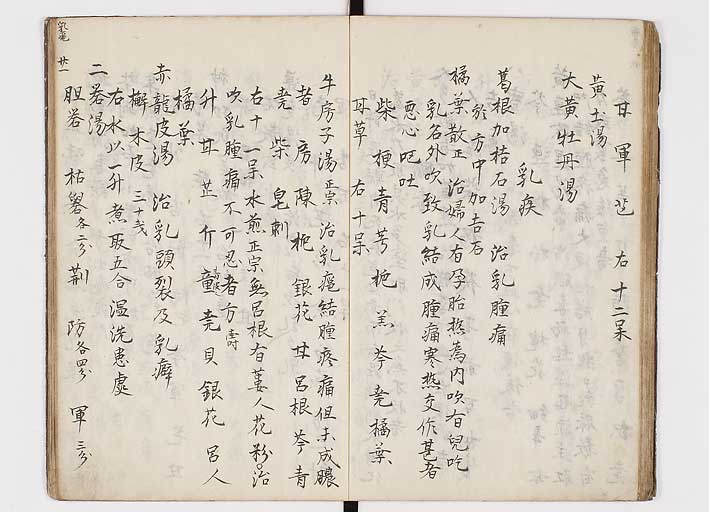 甘 軍 芷 右十二呆
黄土湯
大黄牡丹湯
乳疾
葛根加桔石湯 治乳腫痛
於方中加吉石
橘葉散正 治婦人有孕胎熱為内吹有兒吃
乳名外吹致乳結成腫痛寒熱交作甚者
悪心吃吐
柴 梗 青 芎 栀 羔 芩 尭 橘葉
甘草 右十呆
牛房子湯正宗 治乳疽結腫疼痛但未成膿
者 房 陳 栀 銀花 甘 呂根 芩 青
尭 柴 皂刺
右十一呆水煎正宗無呂根有蔞人花粉○治
吹乳腫痛不可忍者方 寿
升 甘 芷 介 童 尭 貝 銀花 呂人
橘葉
赤龍皮湯 治乳頭裂及乳癖
檞木皮 三十戔
右水以一升煮取五合温洗患處
二礬湯
胆礬 枯礬各二匁 荆 防各四匁 軍三匁
廿一